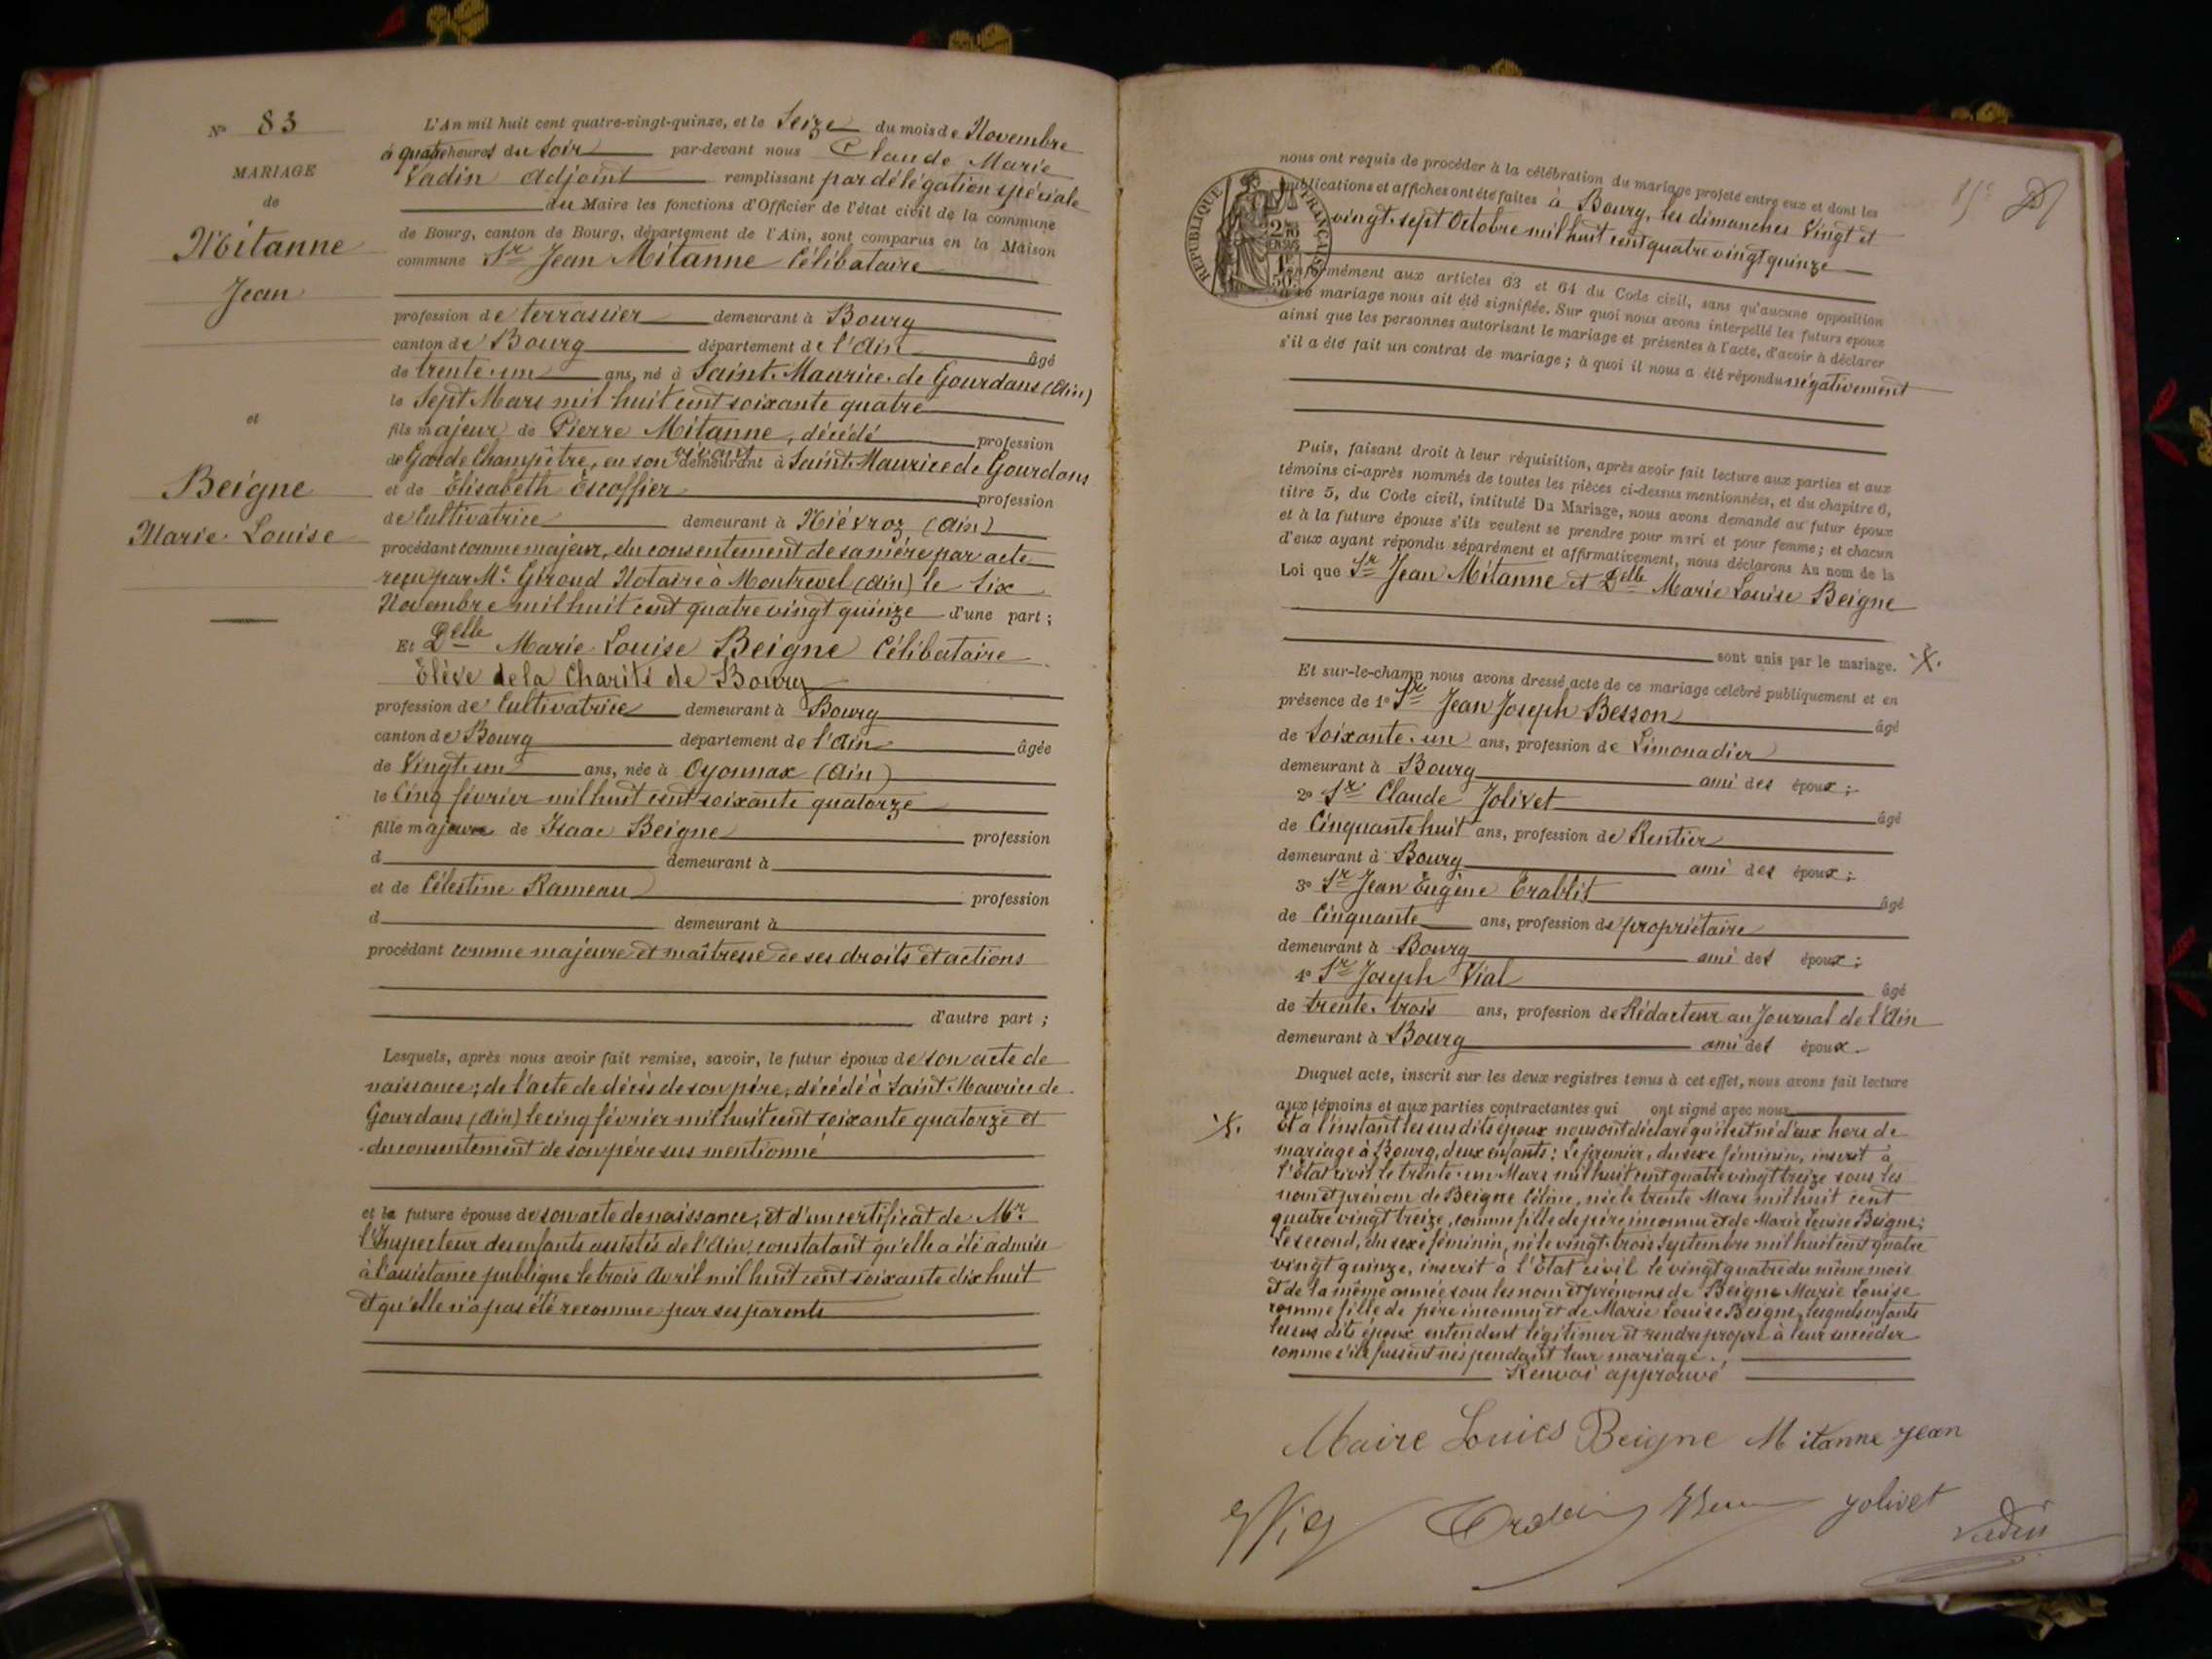 N° 83
MARIAGE
de
Mitanne
Jean
et
Beigne
Marie Louise
L'An mil huit cent quatre-vingt-quinze, et le Seize du mois de Novembre
à quatre heures du soir par-devant nous Claude Marie
Vadin adjoint remplissant par délégation spéciale
du Maire les fonctions d'Officier de l'état civil de la commune
de Bourg, canton de Bourg, département de l'Ain, sont comparus en la Maison
commune Sr Jean Mitanne Célibataire
profession de terrassier demeurant à Bourg
canton de Bourg département de l'Ain âgé
de trente-un ans, né à Saint-Maurice-de Gourdans (Ain)
le Sept Mars mil huit cent soixante quatre
fils majeur de Pierre Mitanne, décédé profession
de Garde Champêtre, en son vivant demeurant à Saint-Maurice de Gourdans
et de Elisabeth Escoffier profession
de Cultivatrice demeurant à Niévroz (Ain)
procédant comme majeur, du consentement de sa mère par acte
reçu par Me Giroud Notaire à Montrevel (Ain) le six
Novembre mil huit cent quatre vingt quinze d'une part ;
Et Delle Marie Louise Beigne Célibataire
Elève de la Charité de Bourg
profession de Cultivatrice demeurant à Bourg
canton de Bourg département de l'Ain âgée
de Vingt-un ans, née à Oyonnax (Ain)
le Cinq février mil huit cent soixante quatorze
fille majeure de Isaac Beigne profession
d demeurant à
et de Célestine Rameau profession
d demeurant à
procédant comme majeure et maîtresse de ses droits et actions
d'autre part ;
Lesquels, après nous avoir fait remise, savoir, le futur époux de son acte de
naissance ; de l'acte de décès de son père, décédé à Saint-Maurice de
Gourdans (Ain) le cinq février mil huit cent soixante quatorze et
du consentement de son père sus mentionné
et la future épouse de son acte de naissance, et d'un certificat de Mr
l'Inspecteur des enfants assistés de l'Ain, constatant qu'elle a été admise
à l'assistance publique le trois Avril mil huit cent soixante dix huit
et qu'elle n'a pas été reconnue par ses parents
nous ont requis de procéder à la célébration du mariage projeté entre eux et dont les
publications et affiches ont été faites à Bourg, les dimanches Vingt et
vingt-sept Octobre mil huit cent quatre vingt quinze
RÉPUBLIQUE FRANÇAISE
conformément aux articles 63 et 64 du Code civil, sans qu'aucune opposition
à ce mariage nous ait été signifiée. Sur quoi nous avons interpellé les futurs époux
ainsi que les personnes autorisant le mariage et présentes à l'acte, d'avoir à déclarer
s'il a été fait un contrat de mariage ; à quoi il nous a été répondu négativement
Puis, faisant droit à leur réquisition, après avoir fait lecture aux parties et aux
témoins ci-après nommés de toutes les pièces ci-dessus mentionnées, et du chapitre 6,
titre 5, du Code civil, intitulé Du Mariage, nous avons demandé au futur époux
et à la future épouse s'ils veulent se prendre pour mari et pour femme ; et chacun
d'eux ayant répondu séparément et affirmativement, nous déclarons Au nom de la
Loi que Sr Jean Mitanne et Delle Marie Louise Beigne
sont unis par le mariage. ·X·
Et sur-le-champ nous avons dressé acte de ce mariage célébré publiquement et en
présence de 1° Sr Jean Joseph Besson âgé
de soixante-un ans, profession de Limonadier
demeurant à Bourg ami des époux ;
2° Sr Claude Jolivet âgé
de Cinquante huit ans, profession de Rentier
demeurant à Bourg ami des époux ;
3° Sr Jean Eugène Erablit âgé
de Cinquante ans, profession de propriétaire
demeurant à Bourg ami des époux ;
4° Sr Joseph Vial âgé
de trente-trois ans, profession de Rédacteur au Journal de l'Ain
demeurant à Bourg ami des époux.
Duquel acte, inscrit sur les deux registres tenus à cet effet, nous avons fait lecture
aux témoins et aux parties contractantes qui ont signé avec nous
·X· Et à l'instant les sus dits époux nous ont déclaré qu'il est né d'eux hors de
mariage à Bourg, deux enfants : Le premier, du sexe féminin, inscrit à
l'Etat civil le trente-un Mars mil huit cent quatre vingt treize sous les
nom et prénom de Beigne Céline, née le trente Mars mil huit cent
quatre vingt treize, comme fille de père inconnu et de Marie Louise Beigne ;
Le second, du sexe féminin, né le vingt-trois Septembre mil huit cent quatre
vingt quinze, inscrit à l'Etat civil le vingt quatre du même mois
et de la même année sous les nom et prénoms de Beigne Marie Louise
comme fille de père inconnu et de Marie Louise Beigne, lesquels enfants
les sus dits époux entendent légitimer et rendre propre à leur succéder
comme s'ils fussent nés pendant leur mariage.
Renvoi approuvé
Maire Louies Beigne Mitanne Jean
Jolivet
Vadin